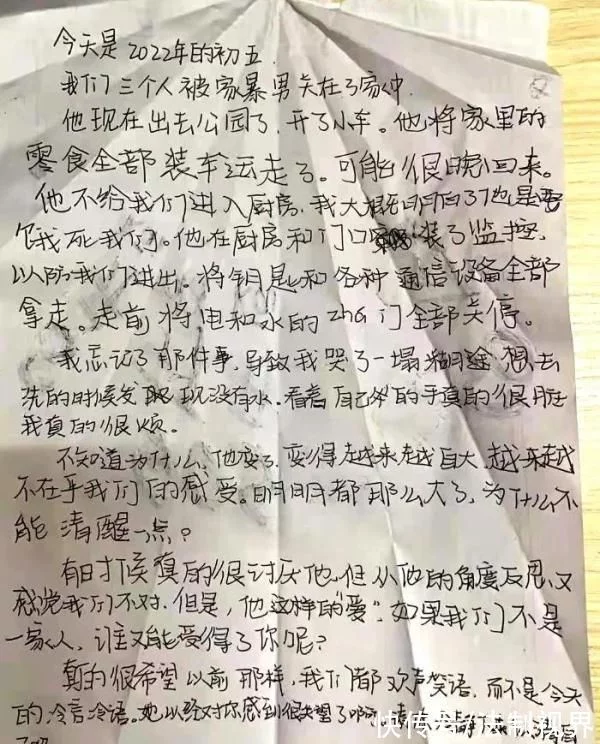 今天是2022年的初五.
我们三个人被家暴男关在了家中.
他现在出去公园了,开了小车。他将家里的
零食全部装车运走了。可能很晚回来。
他不给我们进入厨房,我大概明白了他是要
饿死我们。他在厨房和门口装了监控,
以防我们进出。将钥匙和各种通信设备全部
拿走。走前将电和水的zha门全部关停。
我忘记了那件事,导致我哭了一塌糊涂想去
洗的时候发现没有水.看着自己的手真的很脏
我真的很烦.
不知道为什么,他变了.变得越来越自大,越来越
不在乎我们的感受。明明都那么大了,为什么不
能清醒一点?
有时候真的很讨厌他.但从他的角度反思,又
感觉我们不对.但是,他这样的"爱".如果我们不是
一家人,谁又能受得了你呢?
真的很希望以前那样,我们都欢声笑语,而不是今天
的冷言冷语。她以经对你感到很失望了
快传号/法制视界